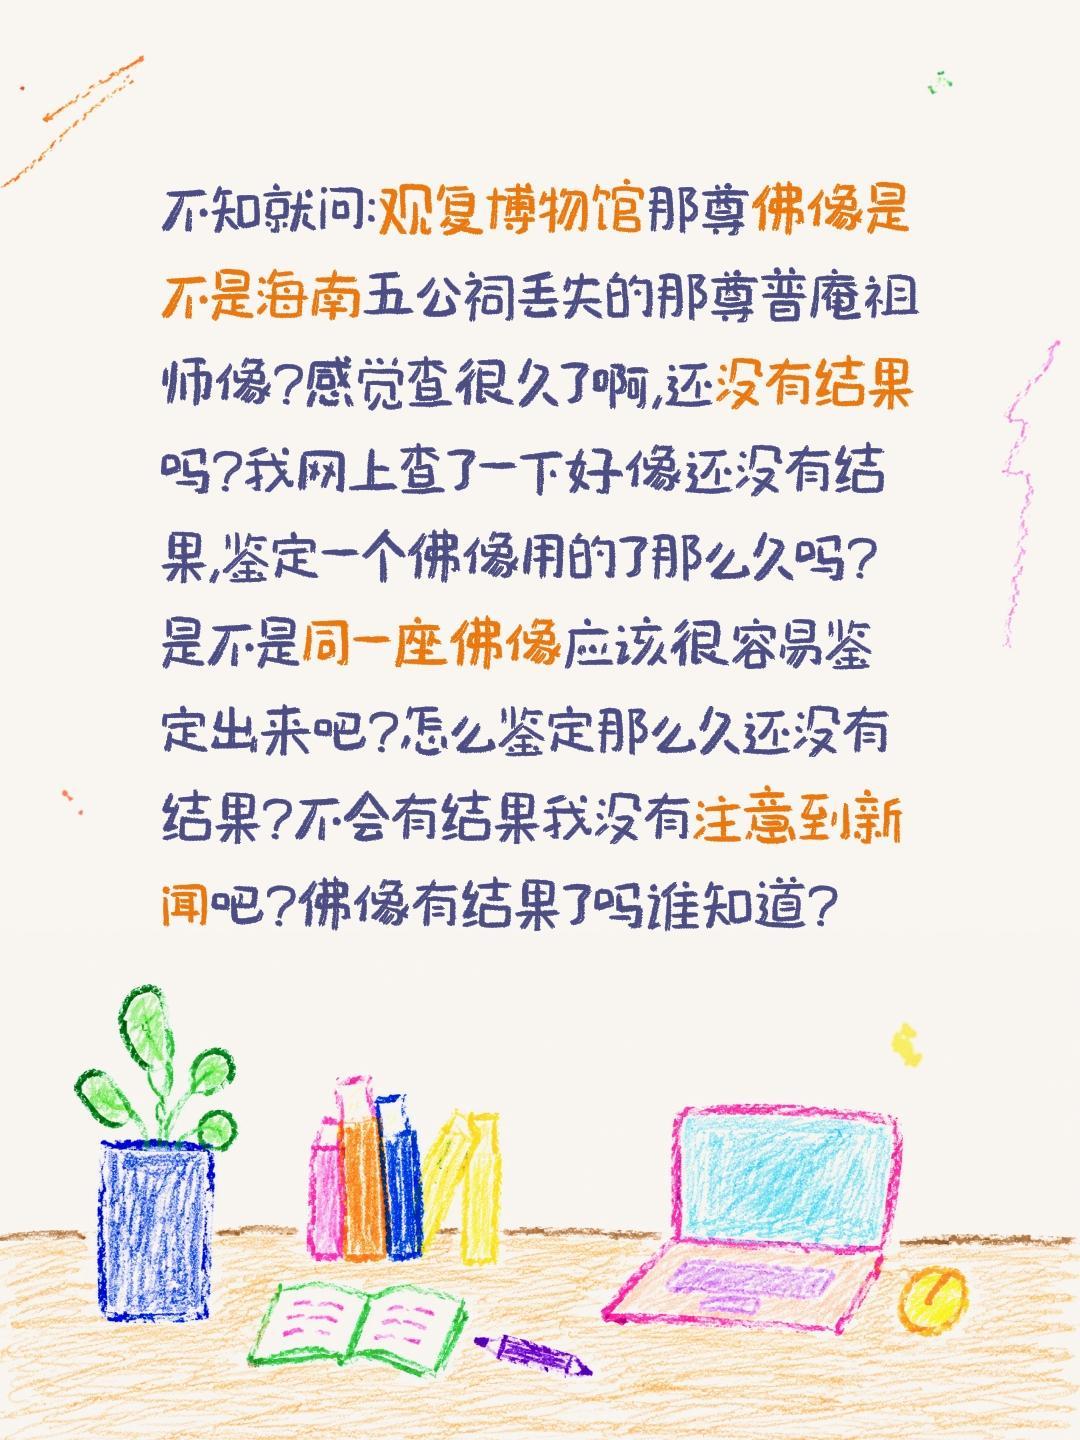 不知就问:观复博物馆那尊佛像是
不是海南五公祠丢失的那尊普庵祖
师像?感觉查很久了啊,还没有结果
吗?我网上查了一下好像还没有结
果,鉴定一个佛像用的了那么久吗?
是不是同一座佛像应该很容易鉴
定出来吧?怎么鉴定那么久还没有
结果?不会有结果我没有注意到新
闻吧?佛像有结果了吗谁知道?